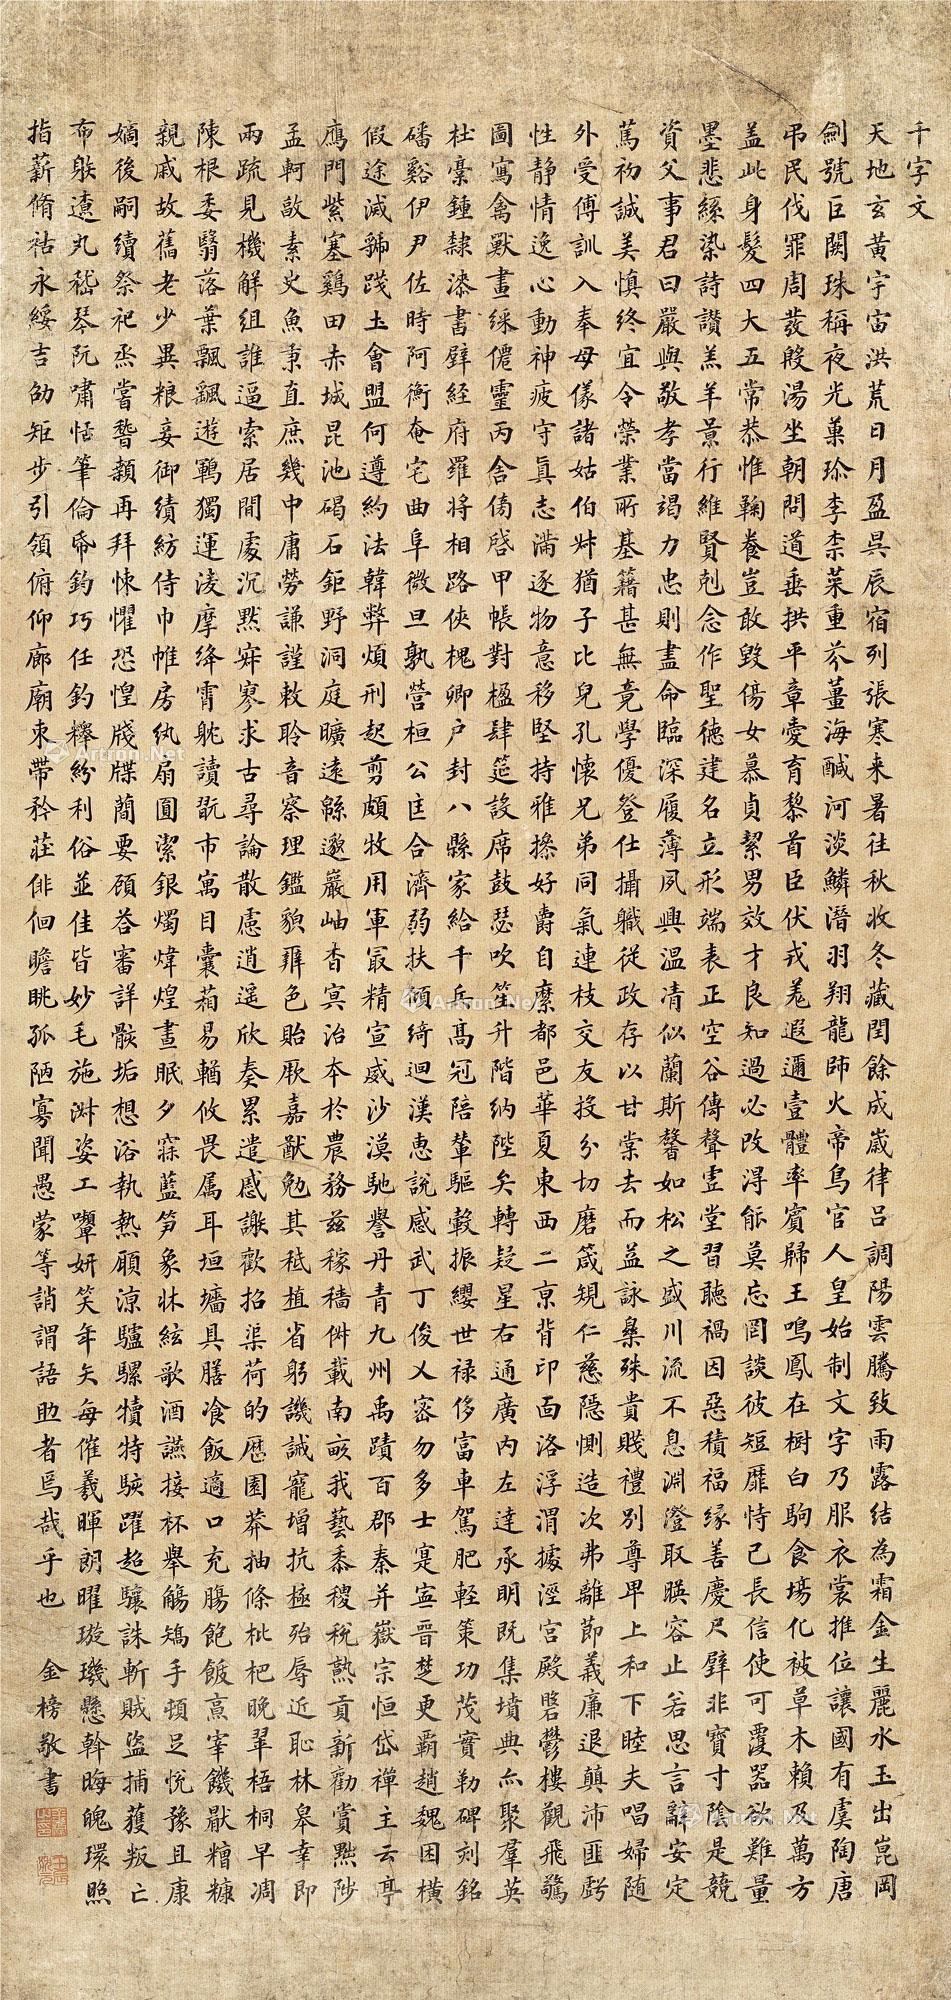 千字文
天地玄黃宇宙洪荒日月盈昃辰宿列張寒来暑往秋收冬藏閏餘成歲律呂調陽雲騰致雨露結為霜金生麗水玉出崑岡
劍號巨闕珠稱夜光菓珍李柰菜重芥薑海醎河淡鱗潛羽翔龍師火帝鳥官人皇始制文字乃服衣裳推位讓國有虞陶唐
弔民伐罪周發殷湯坐朝問道垂拱平章愛育黎首臣伏戎羌遐邇壹體率賓歸王鳴鳳在樹白駒食場化被草木賴及萬方
盖此身髮四大五常恭惟鞠養豈敢毀傷女慕貞絜男效才良知過必改得能莫忘罔談彼短靡恃己長信使可覆器欲難量
墨悲絲染詩讚羔羊景行維賢剋念作聖德建名立形端表正空谷傳聲虛堂習聽禍因惡積福緣善慶尺璧非寶寸陰是競
資父事君曰嚴與敬孝當竭力忠則盡命臨深履薄夙興溫凊似蘭斯馨如松之盛川流不息淵澄取暎容止若思言辭安定
篤初誠美慎終宜令榮業所基籍甚無竟學優登仕攝職從政存以甘棠去而益詠樂殊貴賤禮別尊卑上和下睦夫唱婦随
外受傅訓入奉母儀諸姑伯叔猶子比兒孔懷兄弟同氣連枝交友投分切磨箴規仁慈隱惻造次弗離節義廉退顛沛匪虧
性静情逸心動神疲守真志滿逐物意移堅持雅操好爵自縻都邑華夏東西二京背邙面洛浮渭據涇宮殿盤鬱樓觀飛驚
圖寫禽獸畫綵僊靈丙舍傍啓甲帳對楹肆筵設席鼓瑟吹笙升階納陛弁轉疑星右通廣內左達承明既集墳典亦聚羣英
杜稾鍾隸漆書壁経府羅將相路俠槐卿户封八縣家給千兵高冠陪輦驅轂振纓世禄侈富車駕肥軽策功茂實勒碑刻銘
磻谿伊尹佐時阿衡奄宅曲阜微旦孰營桓公匡合濟弱扶傾綺迴漢惠說感武丁俊乂密勿多士寔寧晉楚更霸趙魏困橫
假途滅虢踐土會盟何遵約法韓弊煩刑起剪頗牧用軍最精宣威沙漠馳譽丹青九州禹蹟百郡秦并嶽宗恒岱禪主云亭
鴈門紫塞鷄田赤城昆池碣石鉅野洞庭曠遠緜邈巖岫杳冥治本於農務茲稼穡俶載南畝我藝黍稷稅熟貢新勸賞黜陟
孟軻敦素史魚秉直庶幾中庸勞謙謹敕聆音察理鑑貌辨色貽厥嘉猷勉其祗植省躬譏誡寵增抗極殆辱近恥林皋幸即
兩疏見機解組誰逼索居閒處沉默寂寥求古尋論散慮逍遥欣奏累遣慼謝歡招渠荷的歷園莽抽條枇杷晚翠梧桐早凋
陳根委翳落葉飄颻遊鵾獨運淩摩絳霄躭讀翫市寓目囊箱易輶攸畏属耳垣墻具膳飡飯適口充腸飽飫烹宰饑厭糟糠
親戚故舊老少異粮妾御績紡侍巾帷房紈扇圓潔銀燭煒煌晝眠夕寐藍笋象牀絃歌酒讌接杯舉觴矯手頓足悅豫且康
嫡後嗣續祭祀烝嘗稽顙再拜悚懼恐惶牋牒簡要顧答審詳骸垢想浴執熱願涼驢騾犢特駭躍超驤誅斬賊盜捕獲叛亡
布射遼丸嵇琴阮嘯恬筆倫紙鈞巧任釣釋紛利俗並佳皆妙毛施淑姿工顰妍笑年矢每催羲暉朗曜璇璣懸斡晦魄環照
指薪脩祜永綏吉劭矩步引領俯仰廊廟束帶矜莊俳佪瞻眺孤陋寡聞愚蒙等誚謂語助者焉哉乎也 金榜敬書
Artron.Net